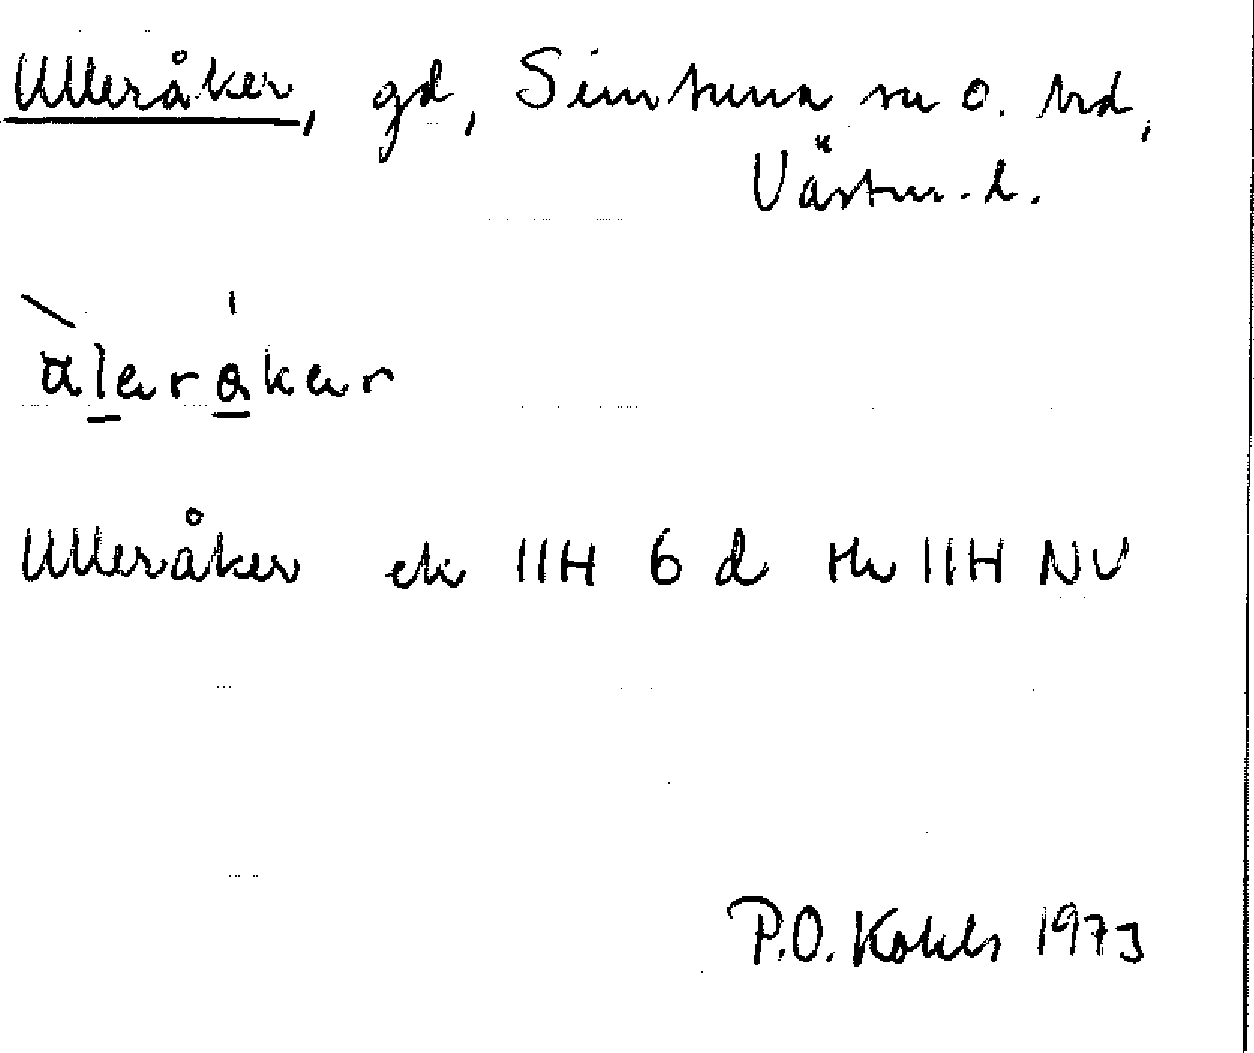 Ulleråker, gd, Simtuna sn o. hd,
Västm. l.
Ulleråker ek 11H 6 d tk 11H NV
P.O. Kohls 1973